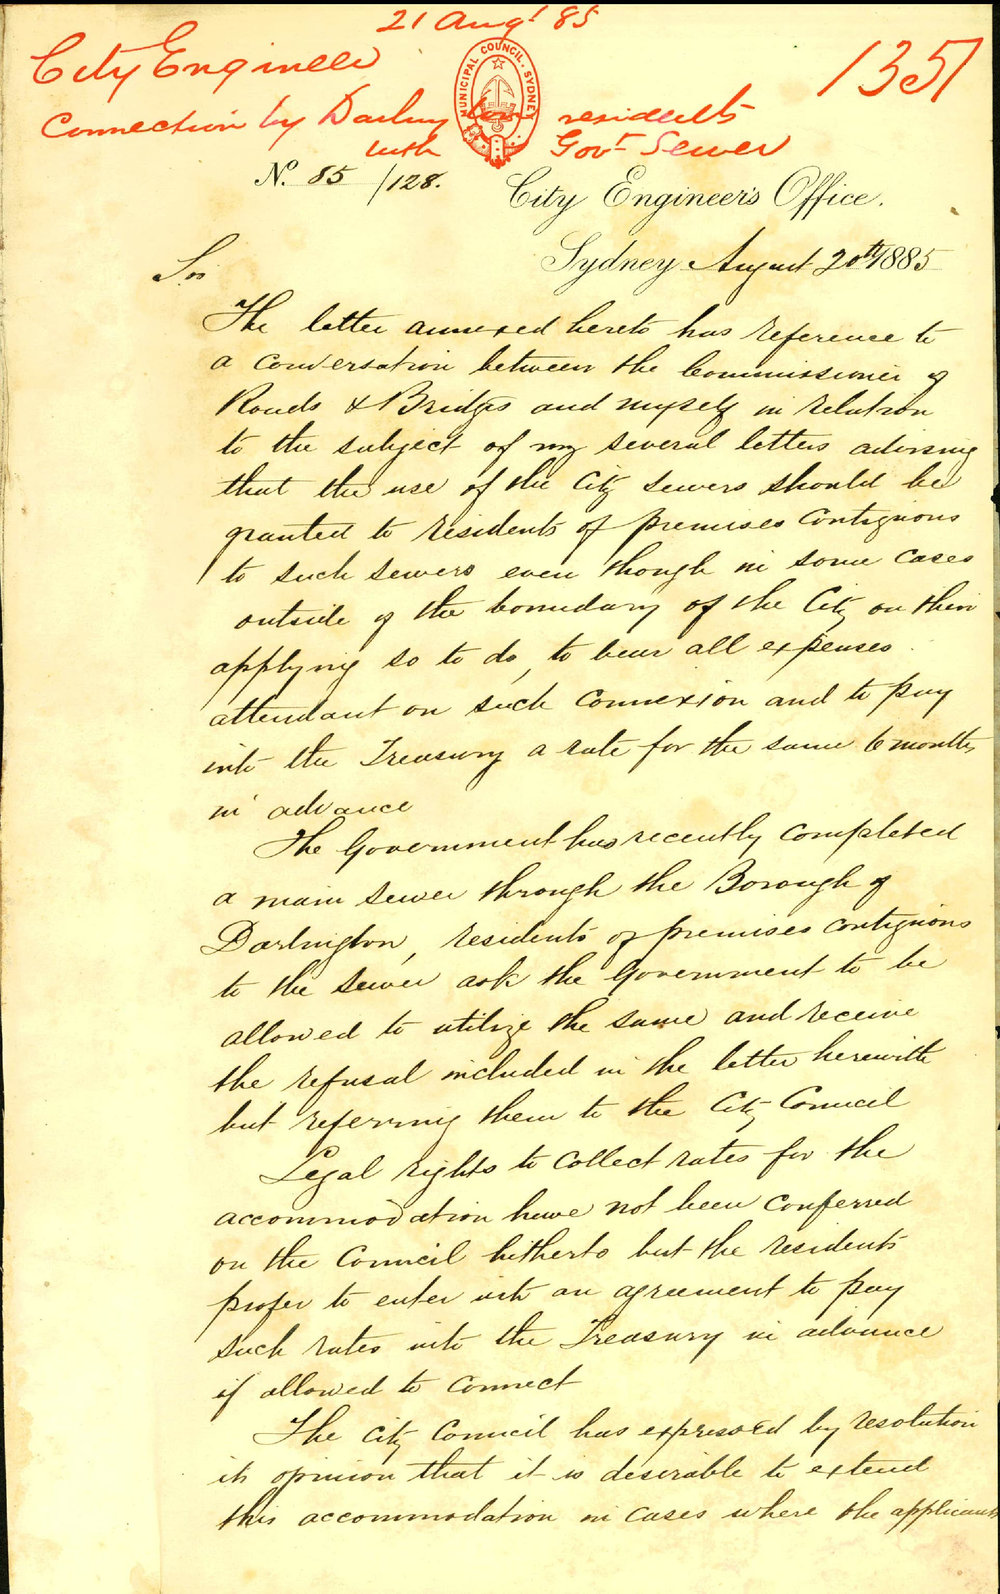 21 Augt 85
City Engineer
1351
MUNICIPAL COUNCIL. SYDNEY
Connection by Darlington residents
with Govt Sewer
No. 85/128.
City Engineer's Office.
Sydney August 20th 1885
Sir
The letter annexed hereto has reference to
a conversation between the Commissioner of
Roads & Bridges and myself in relation
to the subject of my several letters advising
that the use of the City Sewers should be
granted to residents of premises contiguous
to such sewers even though in some cases
outside of the boundary of the City on their
applying so to do, to bear all expenses
attendant on such connexion and to pay
into the Treasury a rate for the same 6 months
in advance
The Government has recently completed
a main sewer through the Borough of
Darlington, residents of premises contiguous
to the sewer ask the Government to be
allowed to utilize the same and receive
the refusal included in the letter herewith
but referring them to the City Council
Legal rights to collect rates for the
accommodation have not been conferred
on the Council hitherto but the residents
profer to enter into an agreement to pay
such rates into the Treasury in advance
if allowed to connect
The City Council has expressed by resolution
its opinion that it is desirable to extend
this accommodation in cases where the applicants